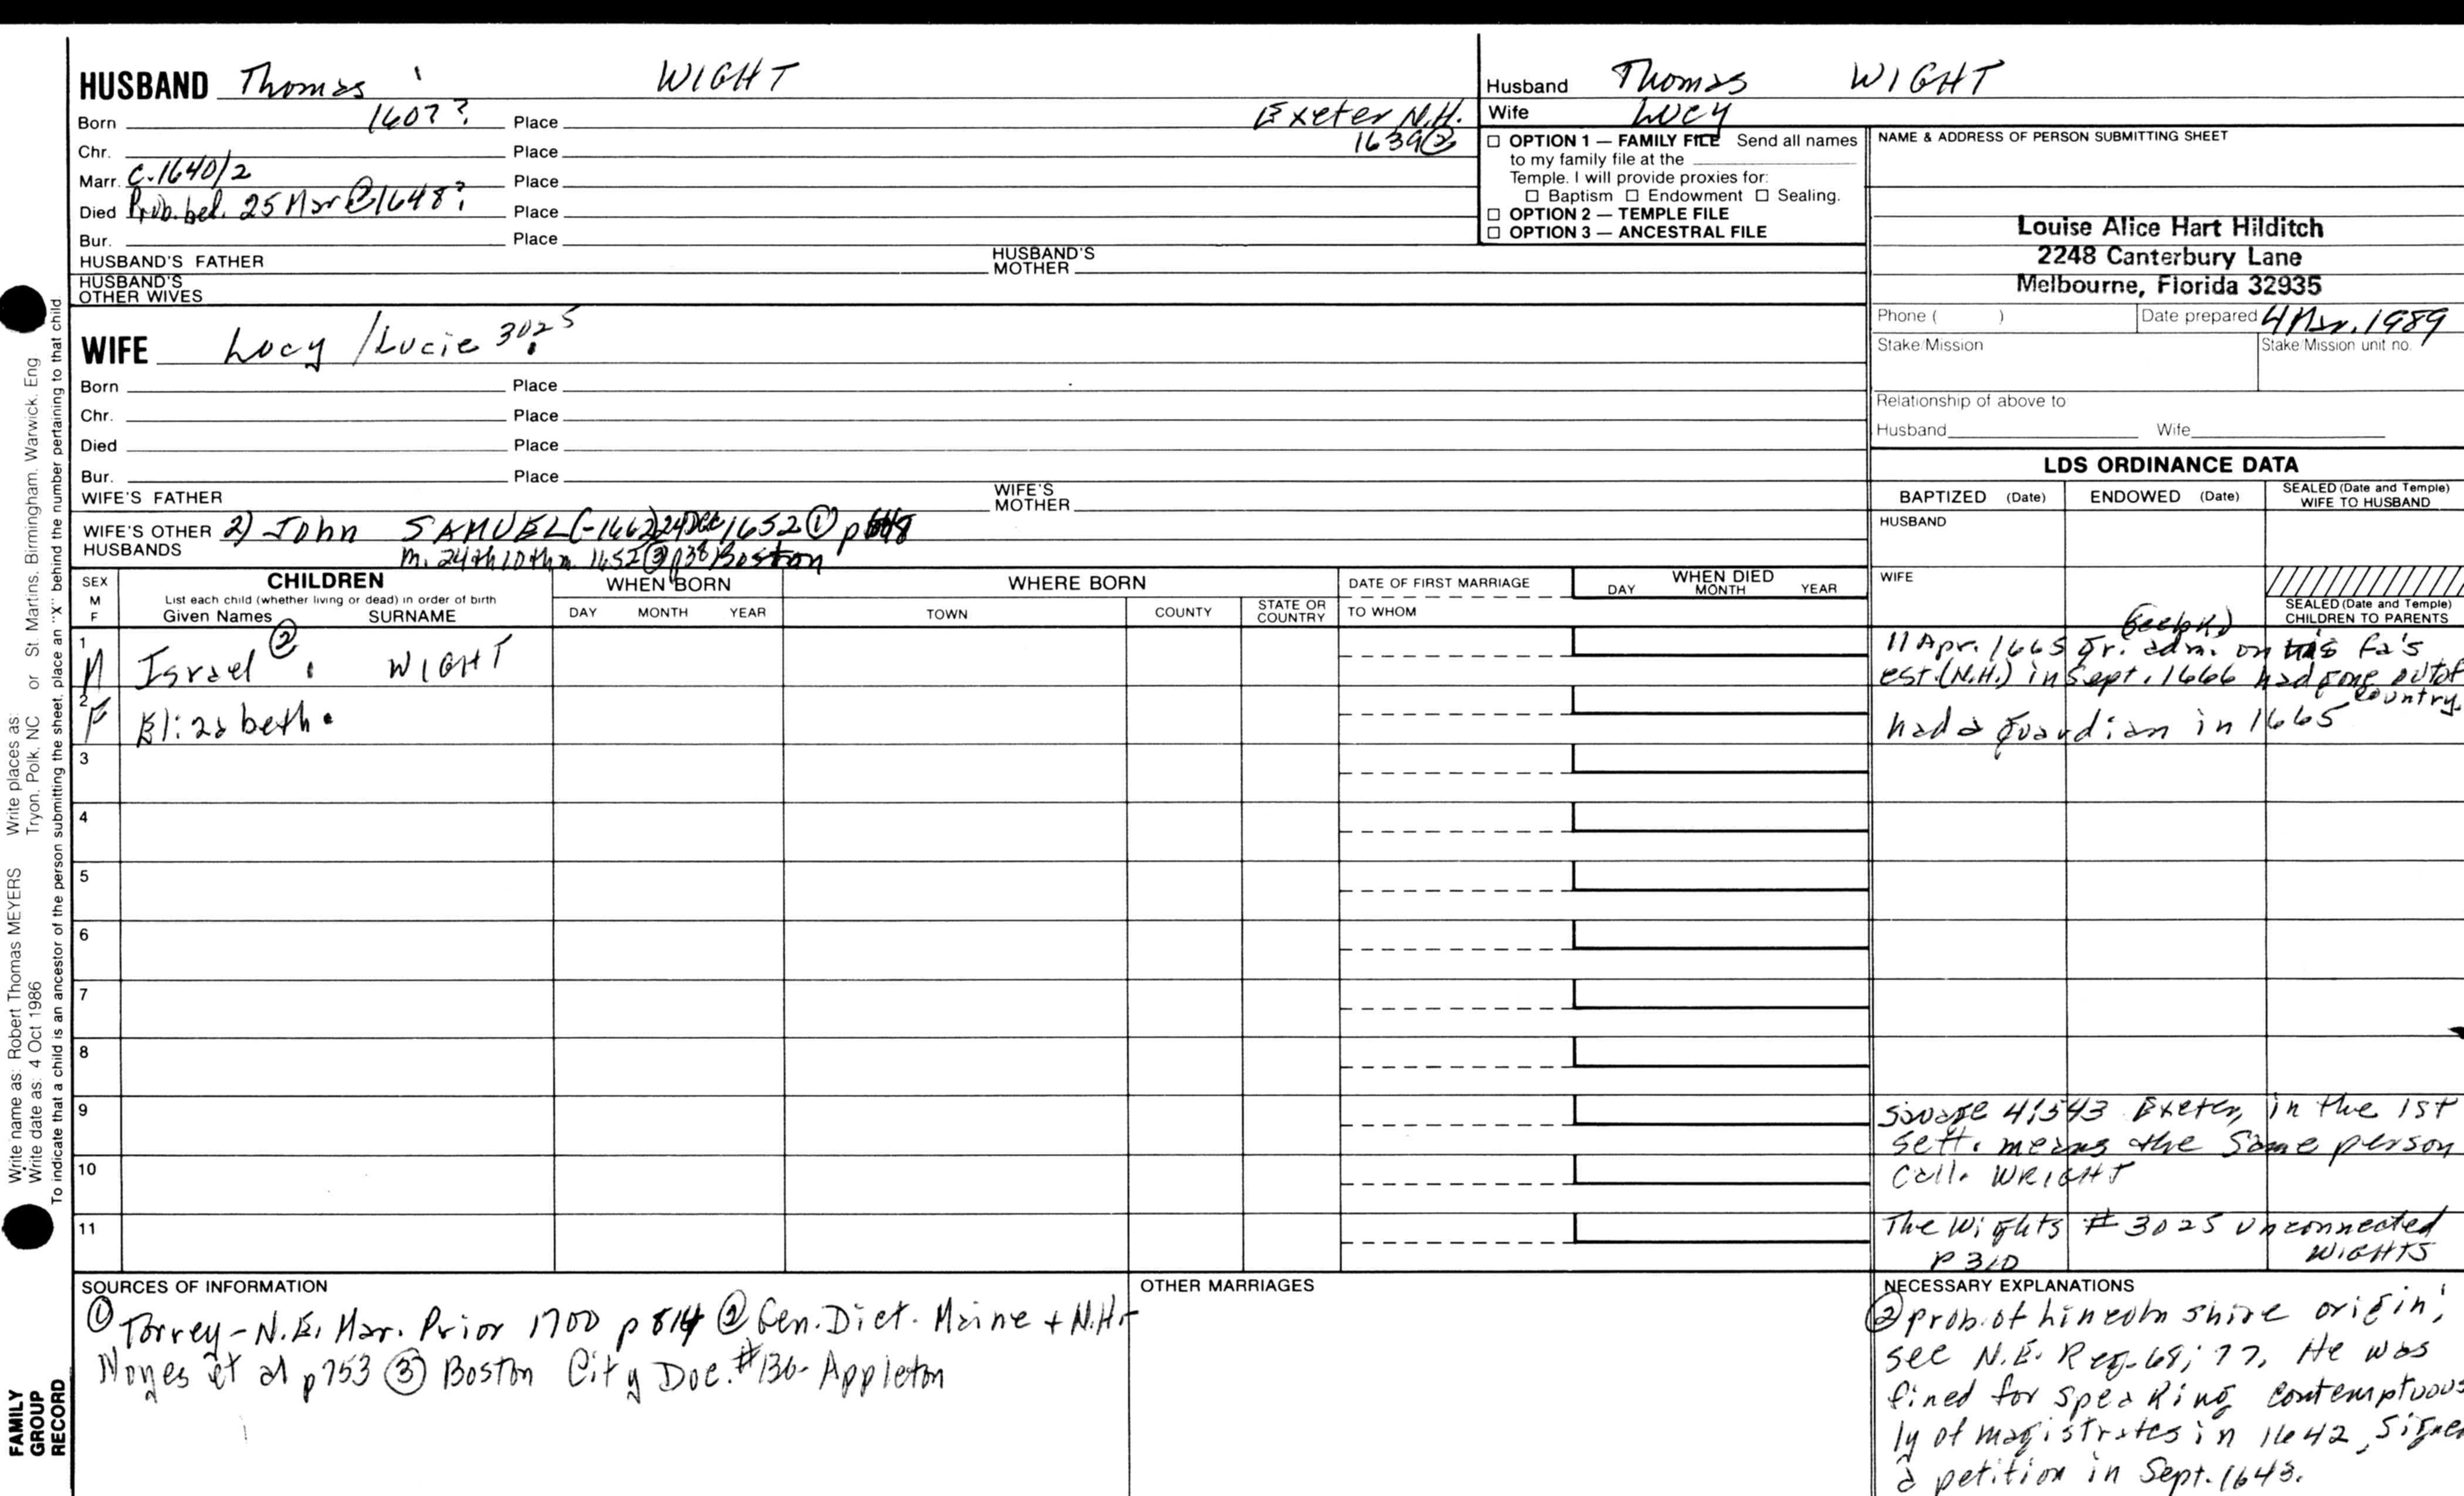 HUSBAND Thomas WIGHT
Born 1607? Place Exeter N.H.
Chr. Place 1639②
Marr. C. 1640/2 Place
Died Prob. bef. 25 Mar @1648? Place
Bur. Place
HUSBAND'S FATHER HUSBAND'S MOTHER
HUSBAND'S OTHER WIVES
WIFE Lucy / Lucie 3025
Born Place
Chr. Place
Died Place
Bur. Place
WIFE'S FATHER WIFE'S MOTHER
WIFE'S OTHER HUSBANDS 2) John SAMUEL (-1662) 24 Dec 1652 ① p
m. 24th 10th m. 1652 ③ p38 Boston
Husband Thomas WIGHT
Wife Lucy
☐ OPTION 1 — FAMILY FILE Send all names
to my family file at the
Temple. I will provide proxies for:
☐ Baptism ☐ Endowment ☐ Sealing.
☐ OPTION 2 — TEMPLE FILE
☐ OPTION 3 — ANCESTRAL FILE
NAME & ADDRESS OF PERSON SUBMITTING SHEET
Louise Alice Hart Hilditch
2248 Canterbury Lane
Melbourne, Florida 32935
Phone ( ) Date prepared 4 Mar. 1989
Stake/Mission Stake/Mission unit no.
Relationship of above to
Husband Wife
LDS ORDINANCE DATA
BAPTIZED (Date) ENDOWED (Date) SEALED (Date and Temple) WIFE TO HUSBAND
HUSBAND
WIFE
SEALED (Date and Temple)
CHILDREN TO PARENTS
SEX M F
CHILDREN
List each child (whether living or dead) in order of birth
Given Names SURNAME
WHEN BORN
DAY MONTH YEAR
WHERE BORN
TOWN COUNTY STATE OR COUNTRY
DATE OF FIRST MARRIAGE
TO WHOM
WHEN DIED
DAY MONTH YEAR
1 M Israel ② WIGHT
11 Apr. 1665 gr. adm. on his fa's
est. (N.H.) in Sept. 1666 had gone out of
country.
2 F Elizabeth
had a guardian in 1665
3
4
5
6
7
8
9
10
11
Savage 4:543 Exeter, in the 1st
sett. means the same person
call. WRIGHT
The Wights #3025 unconnected
p 310 WIGHTS
SOURCES OF INFORMATION
① Torrey - N.E. Mar. Prior 1700 p 814 ② Gen. Dict. Maine + N.H.
Noyes et al p753 ③ Boston City Doc. #130- Appleton
OTHER MARRIAGES
NECESSARY EXPLANATIONS
② prob. of Lincolnshire origin;
see N.E. Reg. 68; 77. He was
fined for speaking contemptuous
ly of magistrates in 1642, signed
a petition in Sept. 1643.
Write name as: Robert Thomas MEYERS Write places as: Tryon, Polk, NC or St. Martins, Birmingham, Warwick, Eng
Write date as: 4 Oct 1986
To indicate that a child is an ancestor of the person submitting the sheet, place an "X" behind the number pertaining to that child
FAMILY
GROUP
RECORD